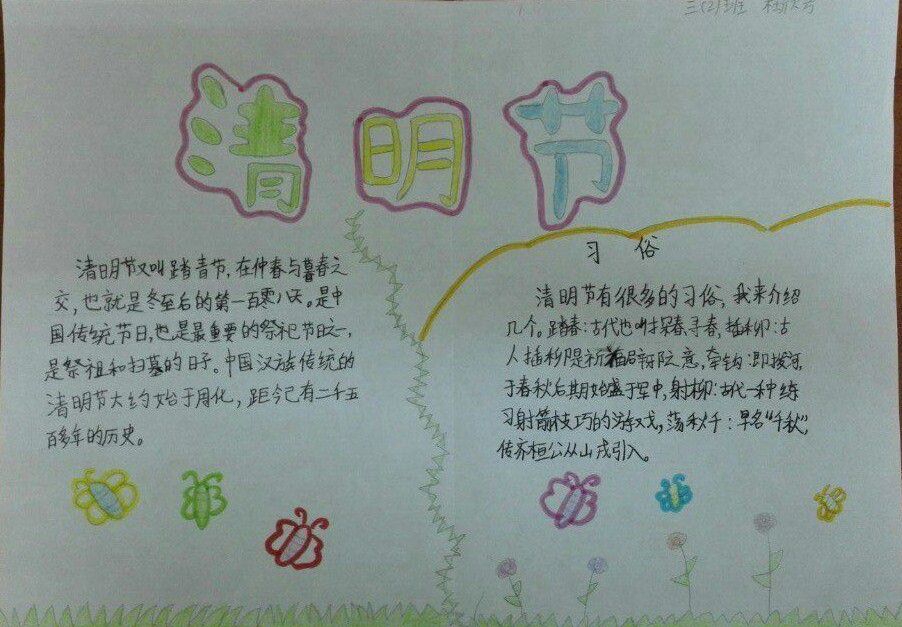 三(2)班
清明节
清明节又叫踏青节，在仲春与暮春之
交，也就是冬至后的第一百零八天。是中
国传统节日，也是最重要的祭祀节日之一，
是祭祖和扫墓的日子。中国汉族传统的
清明节大约始于周代，距今已有二千五
百多年的历史。
习俗
清明节有很多的习俗，我来介绍
几个。踏春：古代也叫探春、寻春，插柳：古
人插柳是祈福辟邪之意，牵钩：即拔河，
于春秋后期始盛于军中，射柳：古代一种练
习射箭技巧的游戏，荡秋千：早名“千秋”，
传齐桓公从山戎引入。